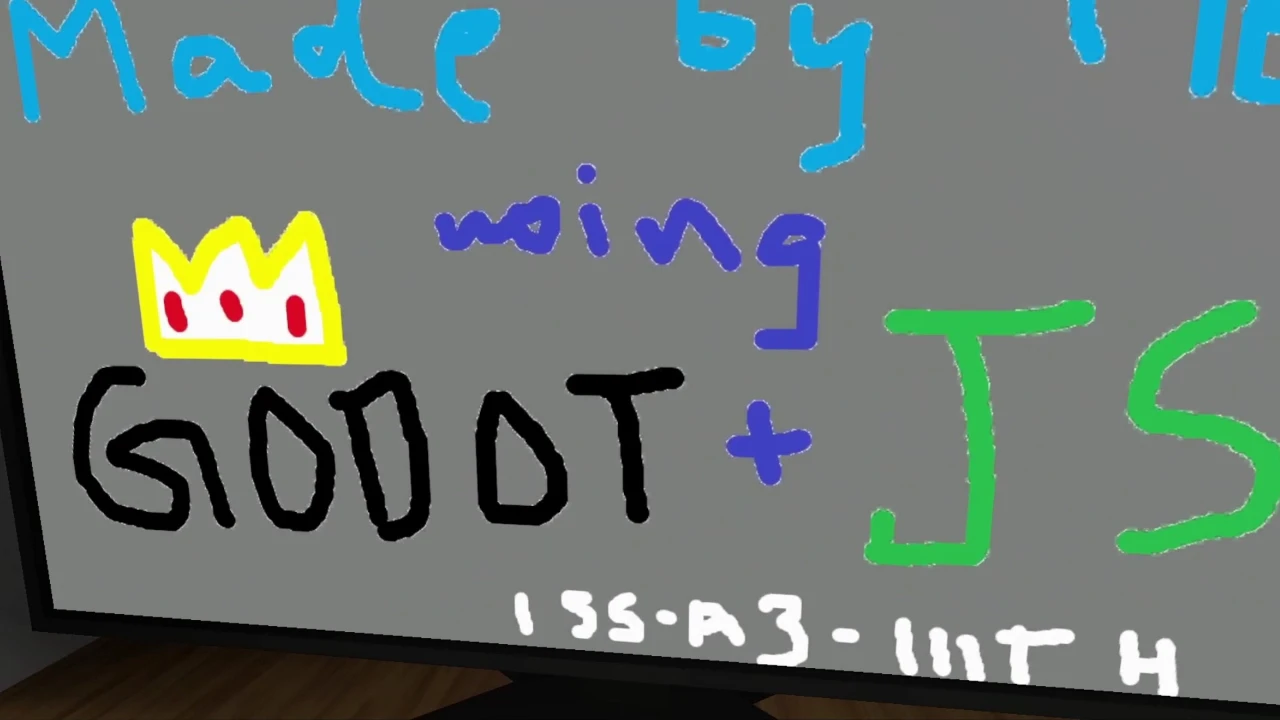 Made by
using
GODOT + JS
ISS-A3-IIIT H